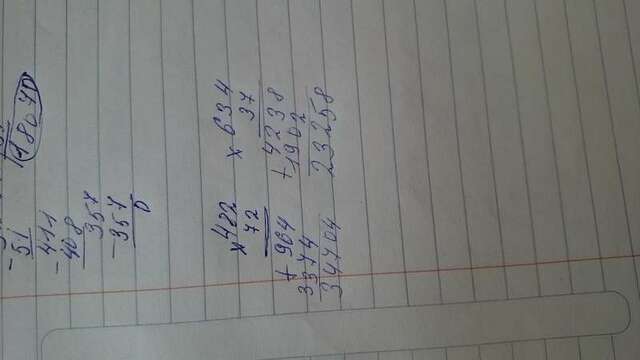 - 51 18070
- 411
408
357
- 357
0
× 482 × 634
72 37
+ 964 + 4238
3374 1902
34704 23258